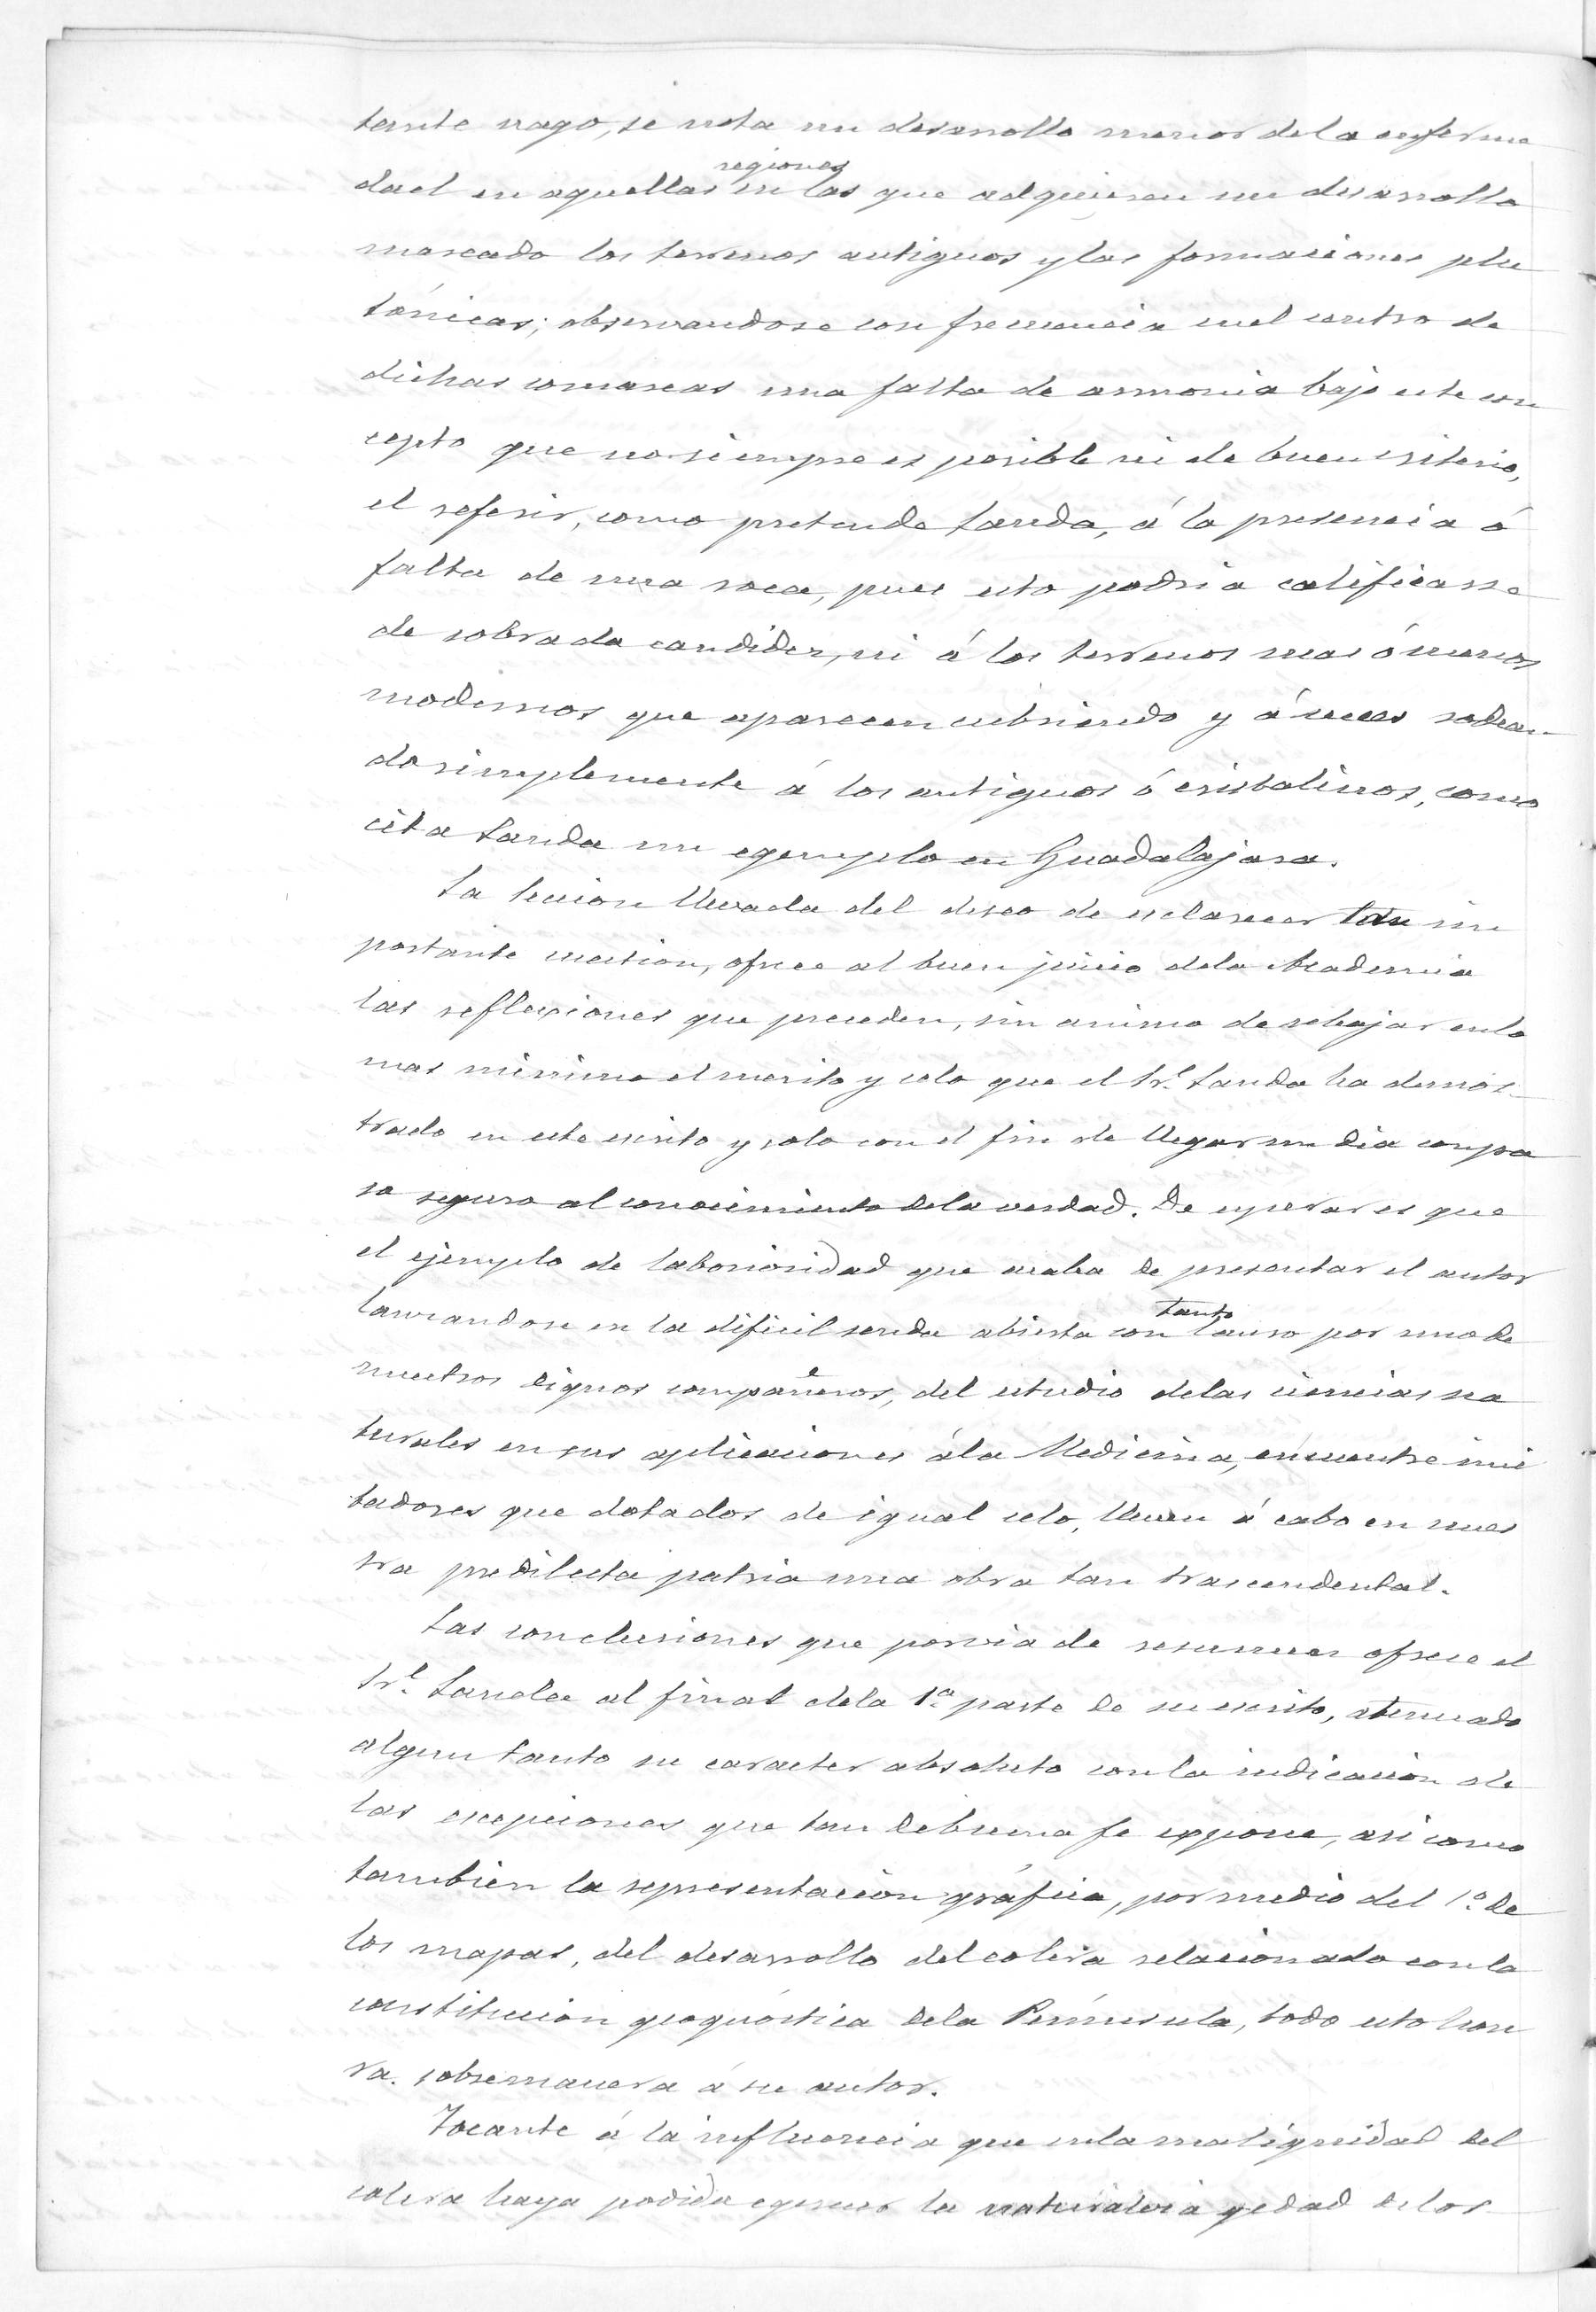 tante vago, se nota un desarrollo menor dela enferme
dad en aquellas regiones en las que adquieren un desarrollo
marcado los terrenos antiguos y las formaciones plu
tónicas; observandose con frecuencia en el centro de
dichas comarcas una falta de armonia bajo este con
cepto que no siempre es posible ni de buen criterio,
el referir, como pretende Landa, á la presencia ó
falta de una roca, pues esto podria calificarse
de sobrada candidez, ni á los terrenos mas ó menos
modernos que aparecen cubriendo y á veces rodean
do simplemente á los antiguos ó cristalinos, como
cita Landa un egemplo en Guadalajara.
La Seccion llevada del deseo de esclarecer tan im
portante cuestion, ofrece al buen juicio dela Academia
las reflexiones que preceden, sin animo de rebajar enlo
mas minimo el merito y celo que el Sr. Landa ha demos
trado en este escrito y solo con el fin de llegar un dia con pa
so seguro al conocimiento dela verdad. De esperar es que
el ejemplo de laboriosidad que acaba de presentar el autor
lanzandose en la dificil senda abierta con tanto lauro por uno de
nuestros dignos compañeros, del estudio delas ciencias na
turales en sus aplicaciones ála Medicina, encuentre imi
tadores que dotados de igual celo, lleven á cabo en nues
tra predilecta patria una obra tan trascendental.
Las conclusiones que por via de resumen ofrece el
Sr. Landa al final dela 1ª parte de su escrito, atenuado
algun tanto su caracter absoluto con la indicacion de
las escepciones que tan debuena fe expone, asi como
tambien la representacion gráfica, por medio del 1º de
los mapas, del desarrollo del colera relacionado con la
constitucion geognóstica dela Peninsula, todo esto hon
ra. sobremanera á su autor.
Tocante á la influencia que enla malignidad del
colera haya podido egercer la naturaleza y edad delos